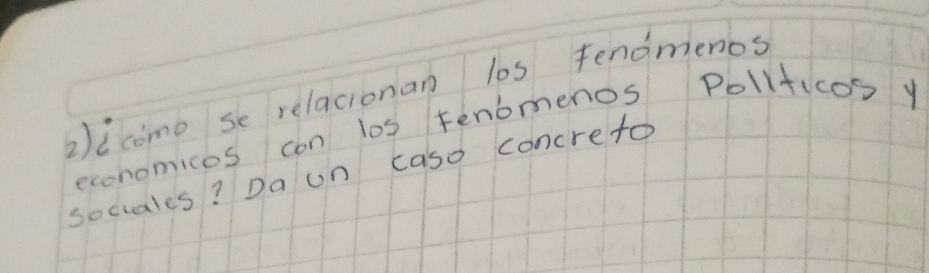 2) ¿cómo se relacionan los fenómenos
economicos con los fenómenos Políticos y
sociales? Da un caso concreto